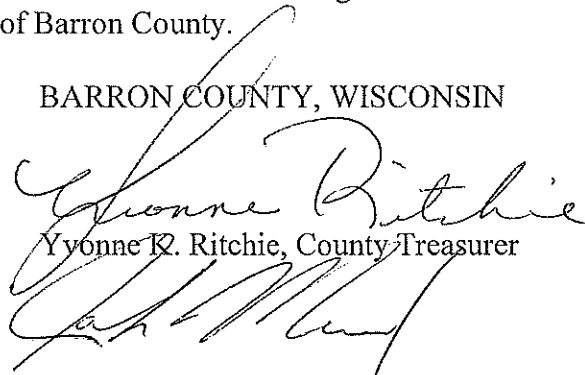 of Barron County.
BARRON COUNTY, WISCONSIN
Yvonne Ritchie
Yvonne K. Ritchie, County Treasurer